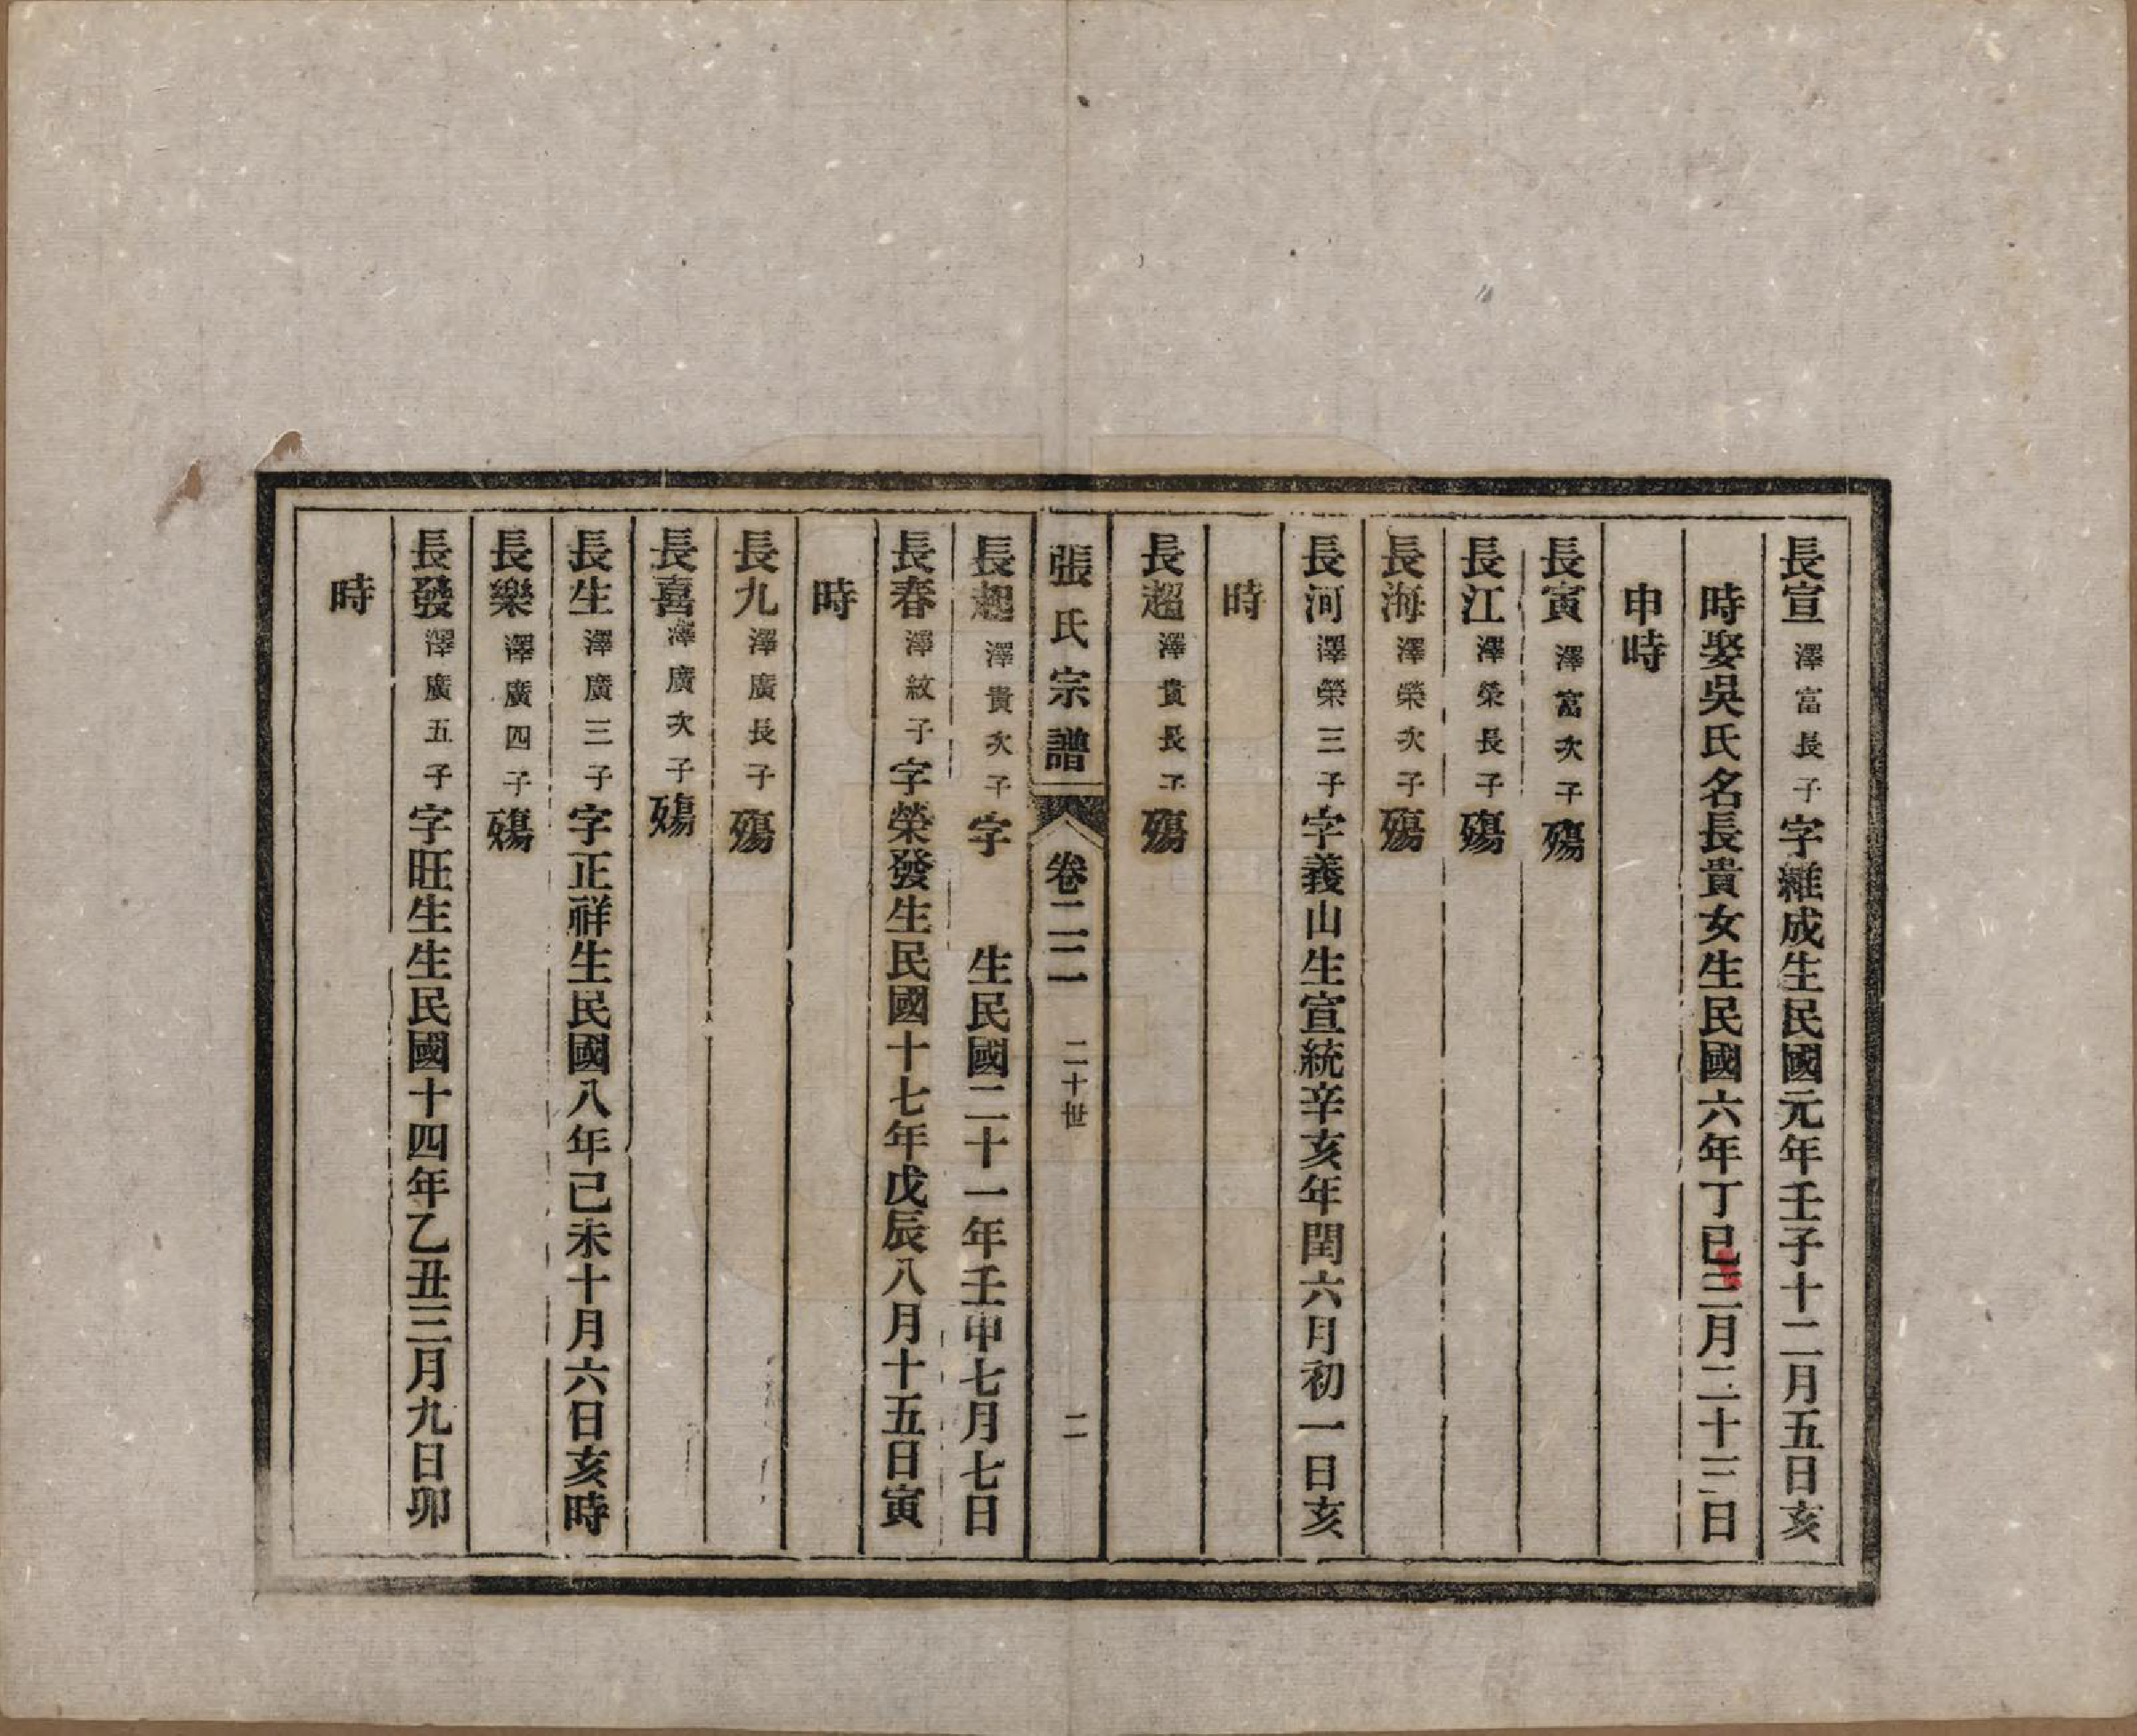 長宣澤富長子字維成生民國元年壬子十二月五日亥
時娶吳氏名長貴女生民國六年丁巳三月二十三日
申時
長寅澤富次子殤
長江澤榮長子殤
長海澤榮次子殤
長河澤榮三子字義山生宣統辛亥年閏六月初一日亥
時
長超澤貴長子殤
張氏宗譜 卷二二 二十世 二
長起澤貴次子字 生民國二十一年壬申七月七日
長春澤紋子字榮發生民國十七年戊辰八月十五日寅
時
長九澤廣長子殤
長喜澤廣次子殤
長生澤廣三子字正祥生民國八年己未十月六日亥時
長樂澤廣四子殤
長發澤廣五子字旺生生民國十四年乙丑三月九日卯
時